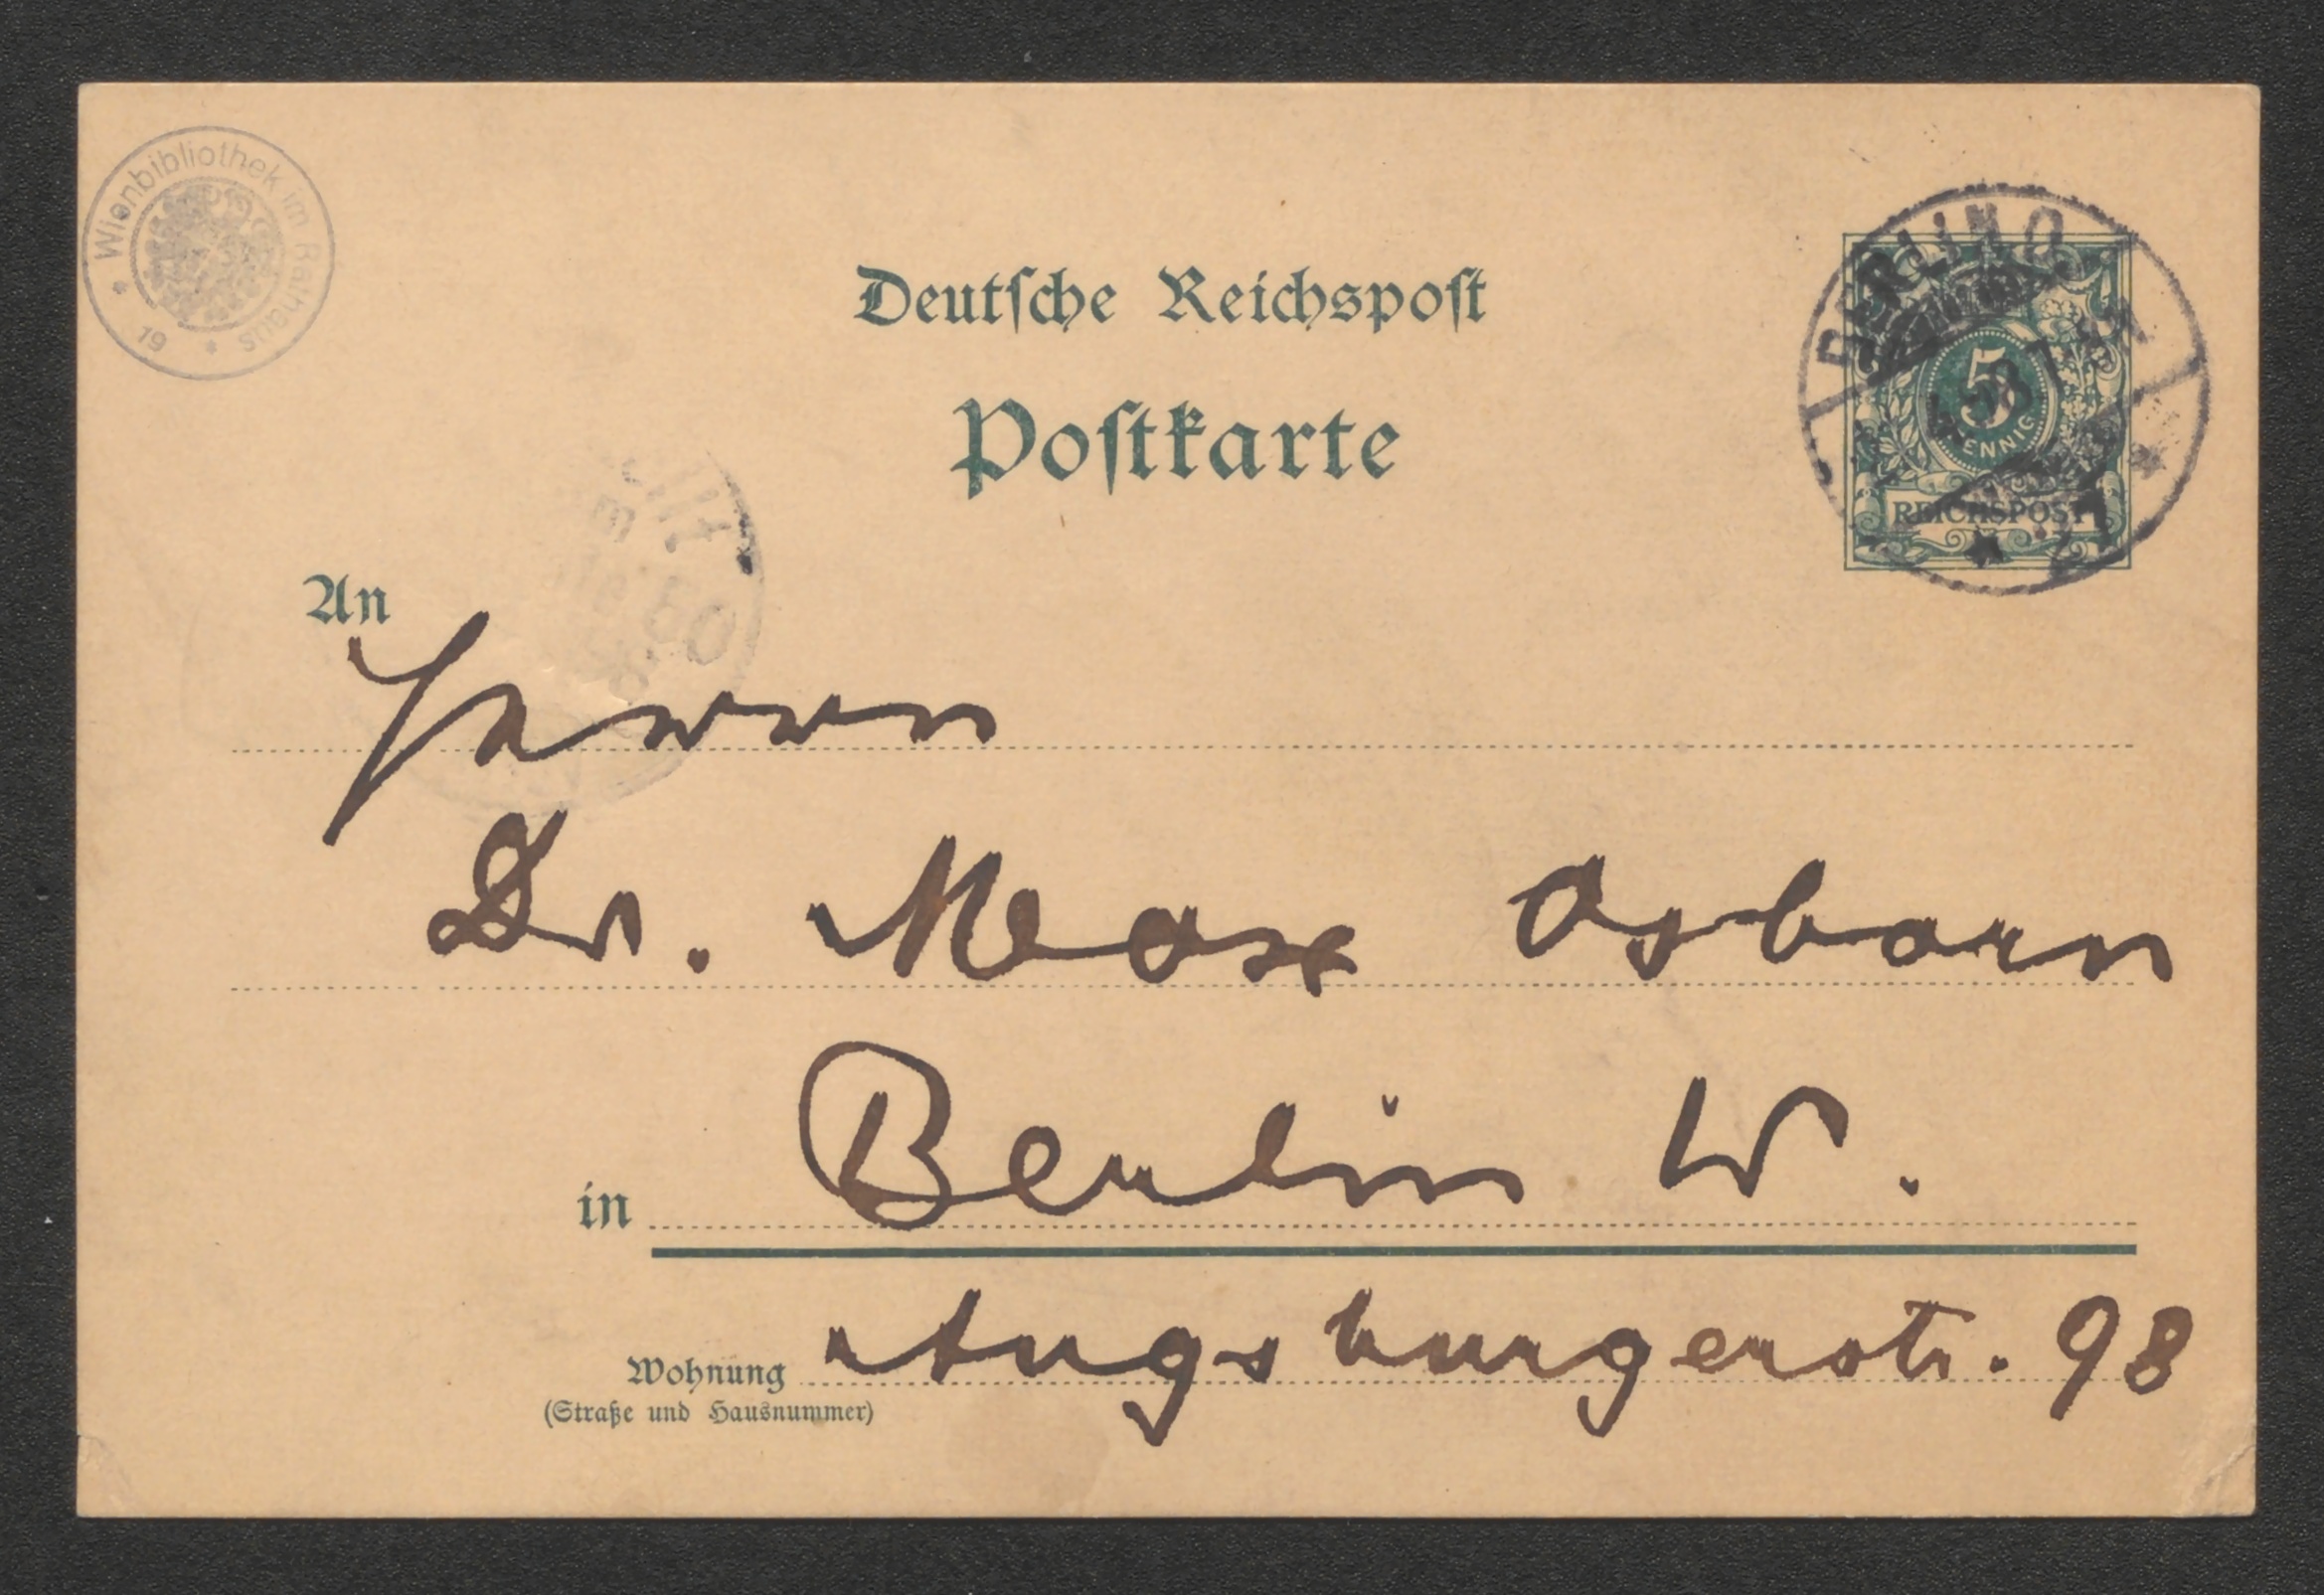 Wienbibliothek im Rathaus
19
Deutſche Reichspoſt
Poſtkarte
BERLIN O.
5
PFENNIG
REICHSPOST
An
Herrn
Dr. Max Osborn
in Berlin W.
Wohnung Augsburgerstr. 98
(Straße und Hausnummer)